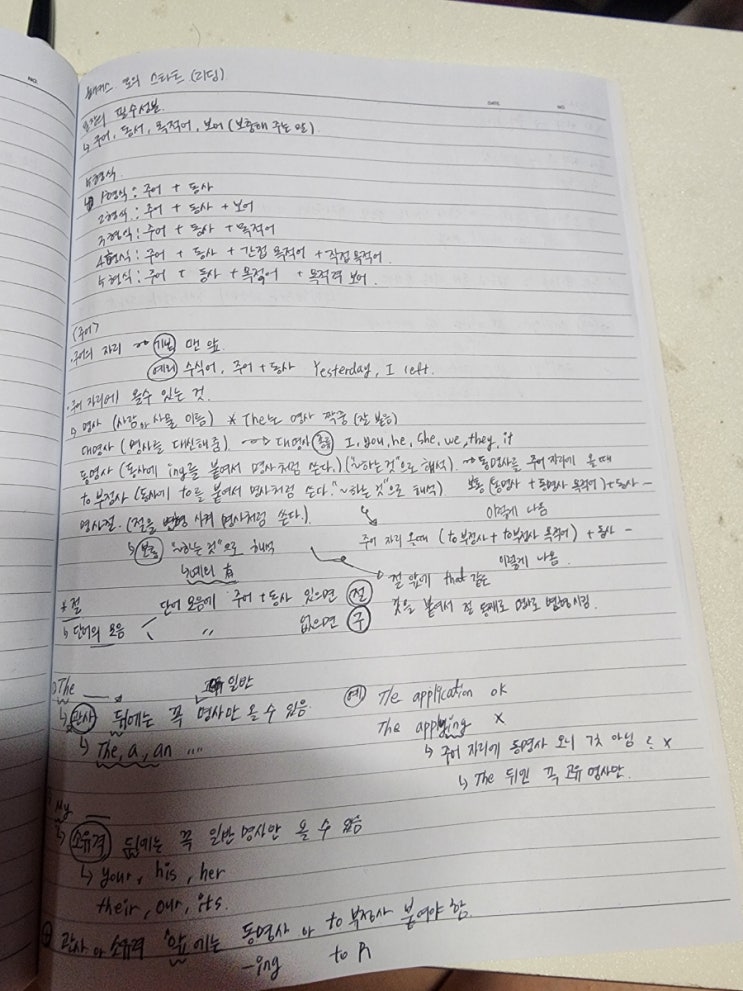 해커스 토익 스타트 (리딩)
DATE. NO.
NO.
문장의 필수성분.
↳ 주어, 동사, 목적어, 보어 (보충해 주는 말).
5형식.
↳ 1형식 : 주어 + 동사
2형식 : 주어 + 동사 + 보어
3형식 : 주어 + 동사 + 목적어
4형식 : 주어 + 동사 + 간접 목적어 + 직접 목적어.
5형식 : 주어 + 동사 + 목적어 + 목적격 보어.
<주어>
· 주어의 자리 → 기본 맨 앞.
예외 수식어, 주어 + 동사 Yesterday, I left.
· 주어 자리에 올수 있는 것.
↳ 명사 (사람과 사물 이름) * The는 명사 짝궁 (잘 붙음)
대명사 (명사를 대신해줌). → 대명사 종류 I, you, he, she, we, they, it
동명사 (동사에 ing를 붙여서 명사처럼 쓴다.) ("~하는 것"으로 해석). → 동명사를 주어 자리에 쓸때
to 부정사 (동사에 to를 붙여서 명사처럼 쓴다. "~하는 것"으로 해석) 보통 (동명사 + 동명사 목적어) + 동사 ~
명사절. (절을 변형 시켜 명사처럼 쓴다.). 이렇게 나옴
주어 자리 올때 (to부정사 + to부정사 목적어) + 동사 ~
↳ 보통 "~하는 것"으로 해석 이렇게 나옴.
↳ 예외 有 절 앞에 that 같은
* 절 단어 모음에 주어 + 동사 있으면 절 것을 붙여서 절 통째로 명사로 변형시킴.
↳ 단어의 모음 〃 없으면 구
The ___ 일반
↳ 관사 뒤에는 꼭 명사만 올 수 있음. 예 The application ok
↳ The, a, an .... The applying X
↳ 주어 자리에 동명사 오니 괜찮 아님? X
↳ The 뒤엔 꼭 고유 명사만.
My ___
↳ 소유격 뒤에는 꼭 일반 명사만 올 수 있음
↳ your, his, her
their, our, its.
관사 나 소유격 앞에는 동명사 나 to 부정사 붙여야 함.
-ing to R